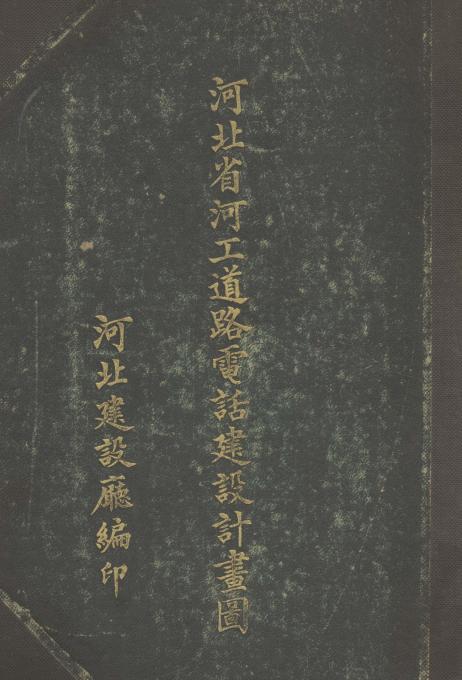 河北省河工道路電話建設計畫圖
河北建設廳編印